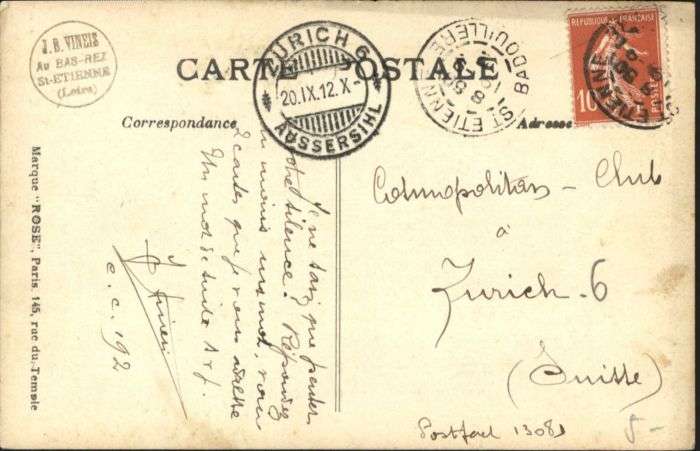 J. B. VINEIS
AU BAS-REZ
St-ETIENNE
(Loire)
CARTE POSTALE
Correspondance
Adresse
ZURICH 6
20.IX.12.X-
AUSSERSIHL
ST ETIENNE BADOUILLERE
REPUBLIQUE FRANÇAISE
10
POSTES
ST ETIENNE
Marque "ROSE", Paris. 145, rue du Temple
Je ne sais que penser
votre silence. Répondez
au moins un mot, sur
cartes que je vous adresse
Un mot de suite s v p.
J Vineis
c. c. 192
Cosmopolitan - Club
à
Zurich - 6
(Suisse)
Postfach 13081
5-